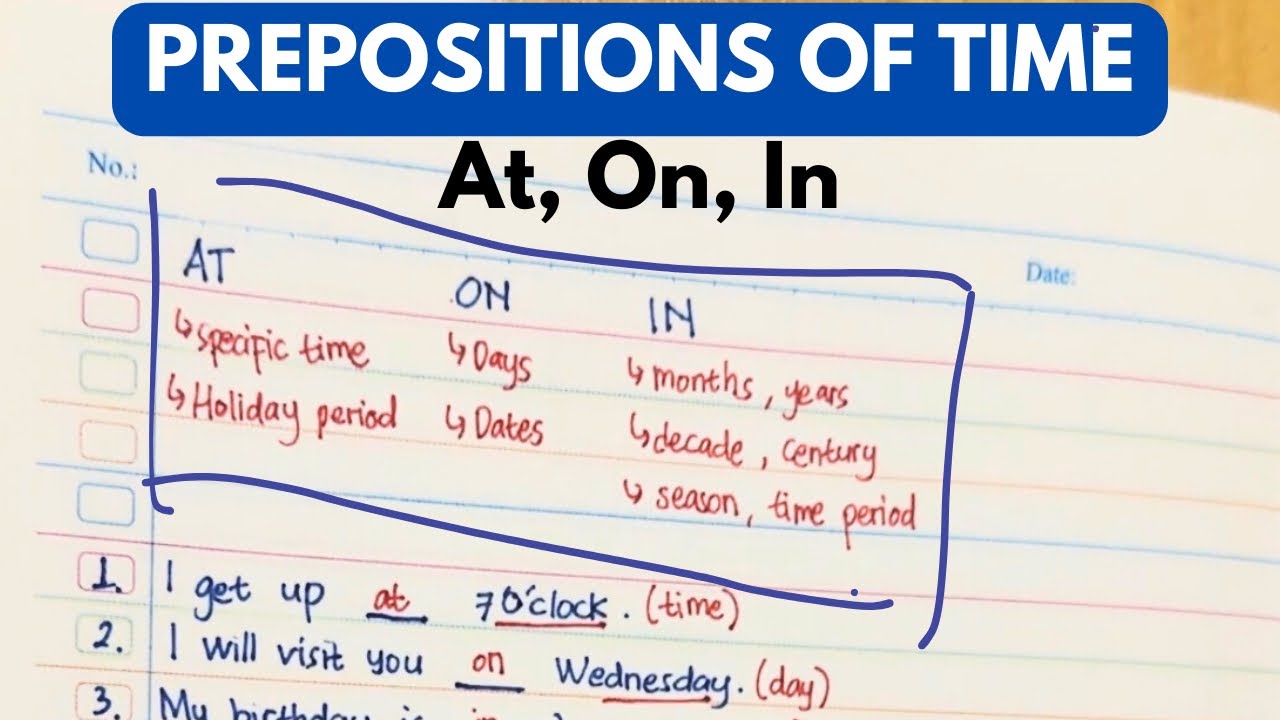 PREPOSITIONS OF TIME
At, On, In
No.:
Date:
AT ON IN
↳ specific time ↳ Days ↳ months, years
↳ Holiday period ↳ Dates ↳ decade, century
↳ season, time period
1. I get up at 7 O'clock. (time)
2. I will visit you on Wednesday. (day)
3. My birthday is in